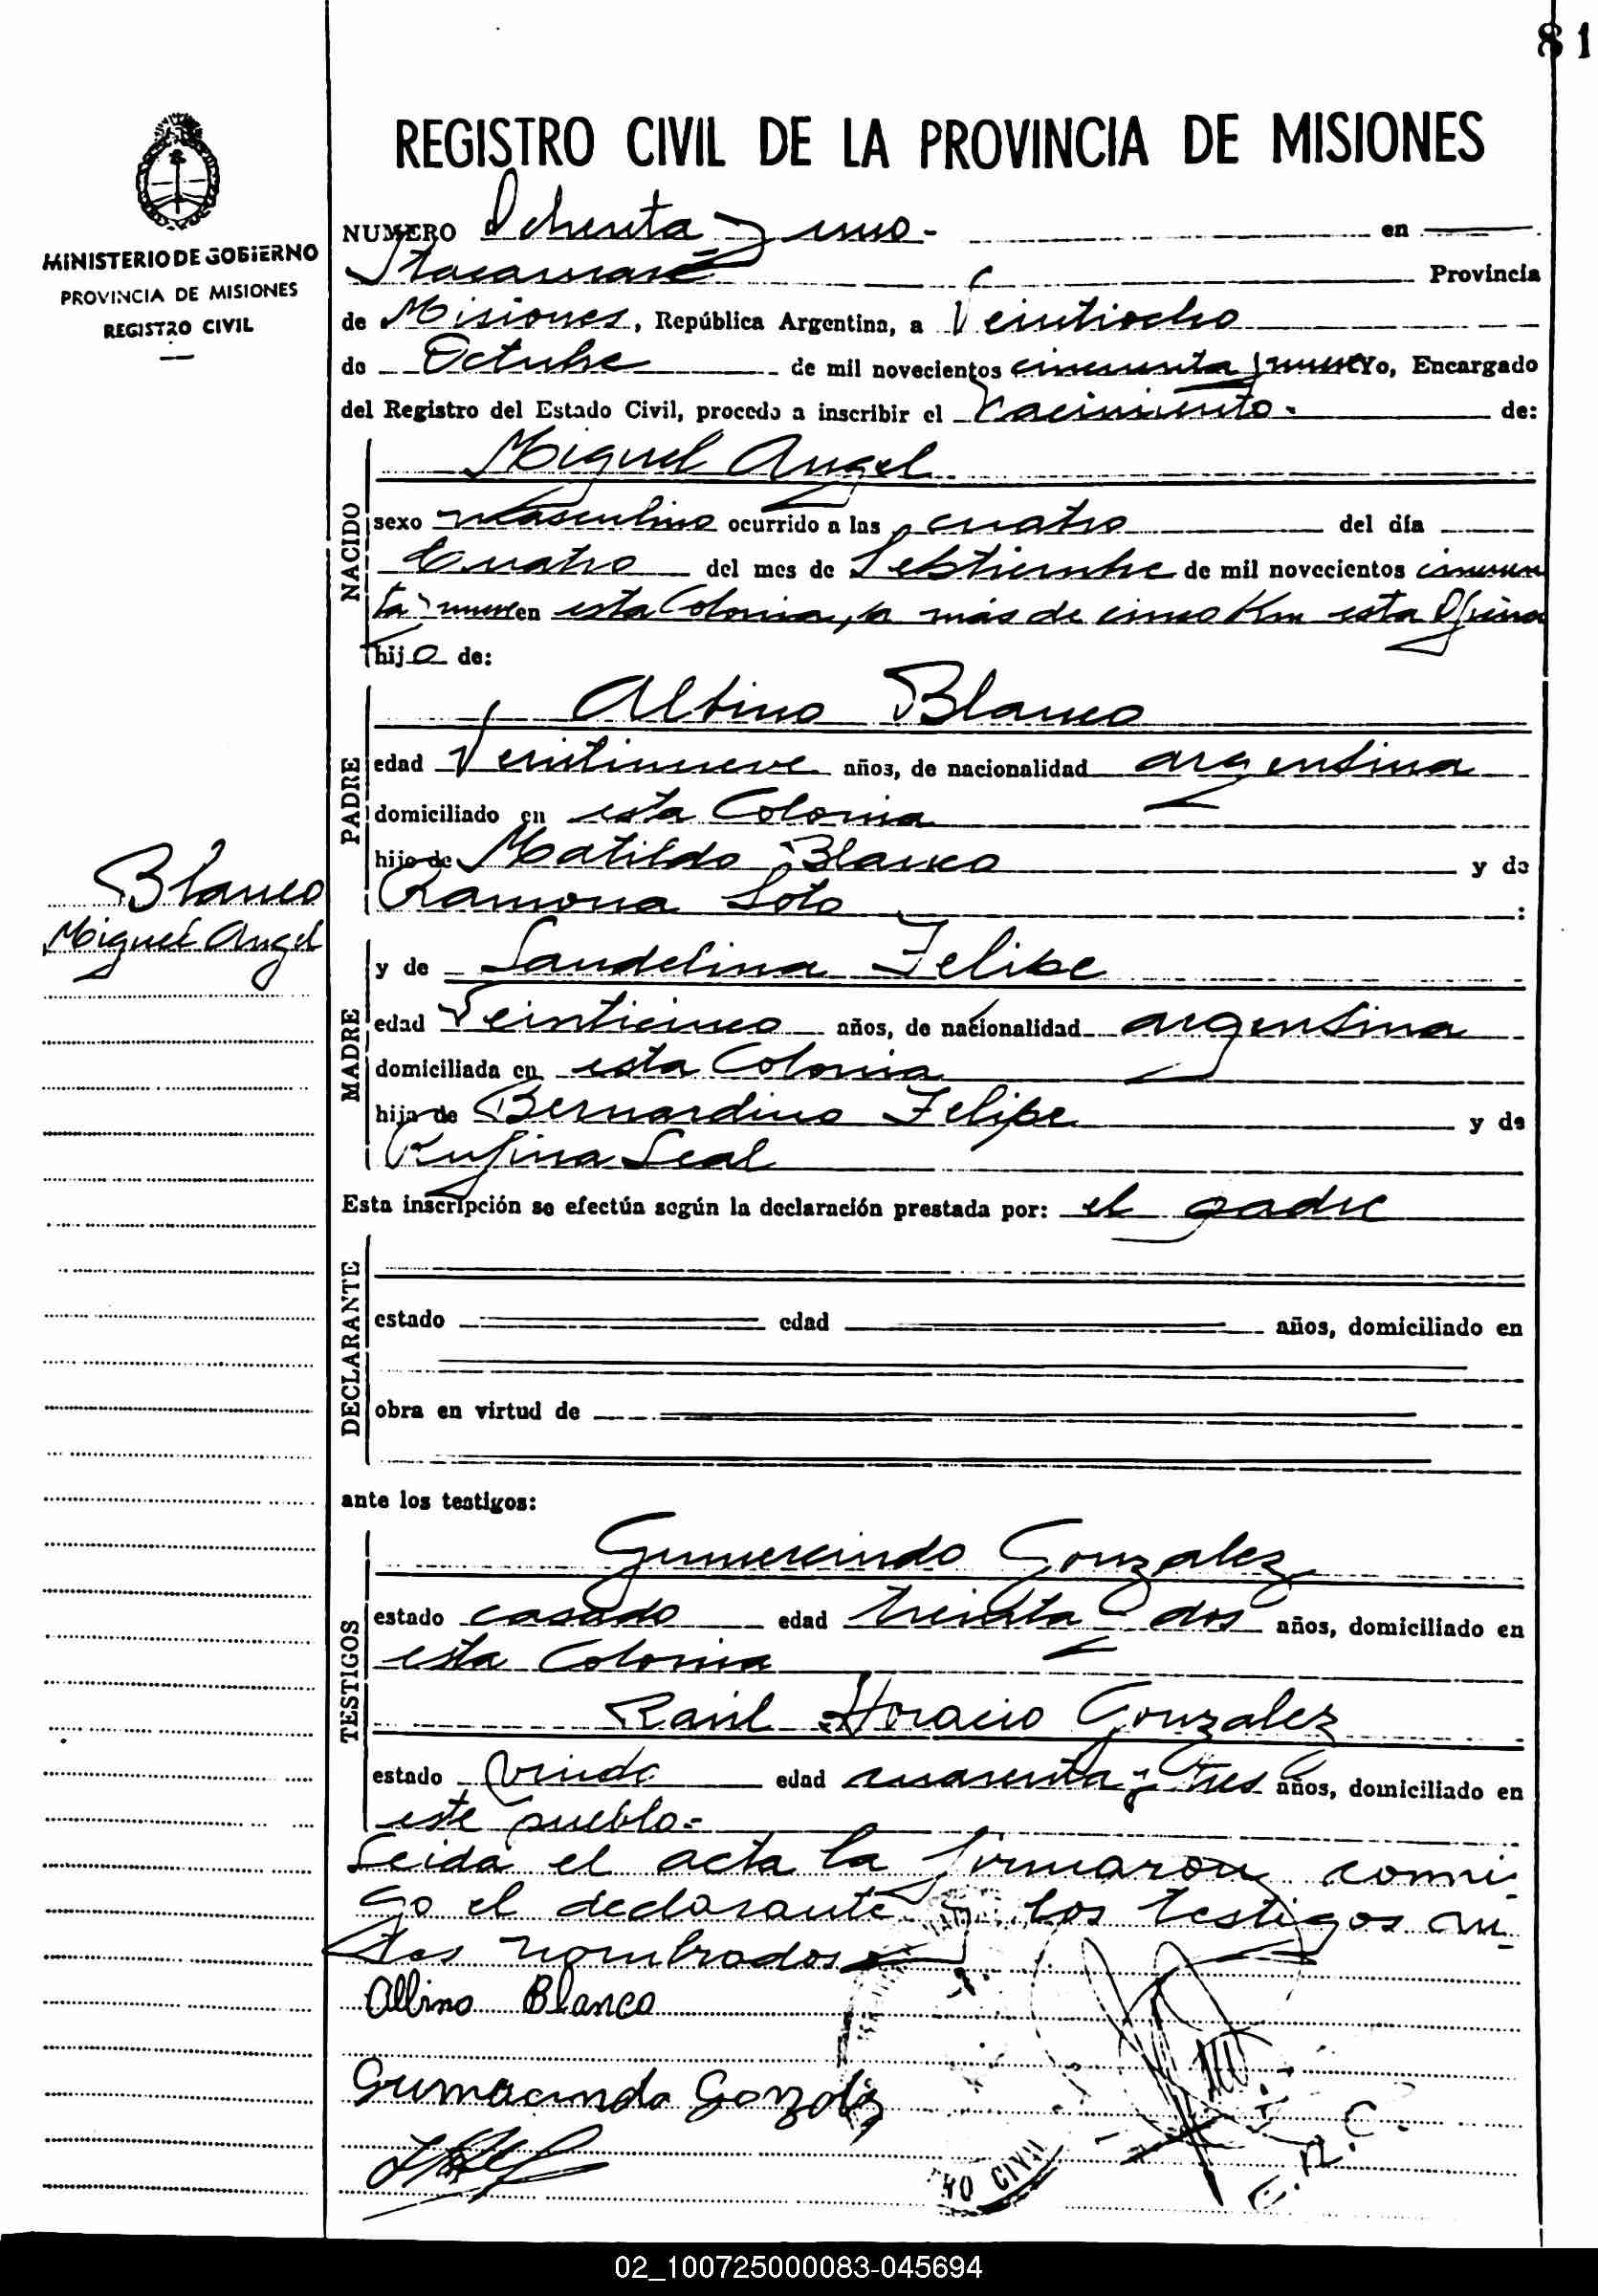 81
MINISTERIO DE GOBIERNO
PROVINCIA DE MISIONES
REGISTRO CIVIL
REGISTRO CIVIL DE LA PROVINCIA DE MISIONES
NUMERO Ochenta y uno - en
Itacaruaré Provincia
de Misiones, República Argentina, a Veintiocho
de Octubre de mil novecientos cincuenta y nueve Yo, Encargado
del Registro del Estado Civil, procedo a inscribir el Nacimiento - de:
NACIDO
Miguel Angel
sexo masculino ocurrido a las cuatro del día
Cuatro del mes de Setiembre de mil novecientos cincuen
ta y nueve en esta Colonia, a más de cinco Km esta Oficina
hijo de:
PADRE
Albino Blanco
edad Veintinueve años, de nacionalidad argentina
domiciliado en esta Colonia
hijo de Matildo Blanco y de
Ramona Soto :
Blanco
Miguel Angel
MADRE
y de Landelina Felipe
edad Veinticinco años, de nacionalidad argentina
domiciliada en esta Colonia
hija de Bernardino Felipe y de
Rufina Leal
Esta inscripción se efectúa según la declaración prestada por: el padre
DECLARANTE
estado edad años, domiciliado en
obra en virtud de
ante los testigos:
TESTIGOS
Gumercindo Gonzalez
estado casado edad treinta y dos años, domiciliado en
esta Colonia
Raúl Horacio Gonzalez
estado Viudo edad cuarenta y tres años, domiciliado en
este pueblo.=
Leida el acta la firmaron conmi-
go el declarante y los testigos an-
tes nombrados
Albino Blanco
Gumercindo Gonzalez
RO CIVIL
E.R.C.
02_100725000083-045694